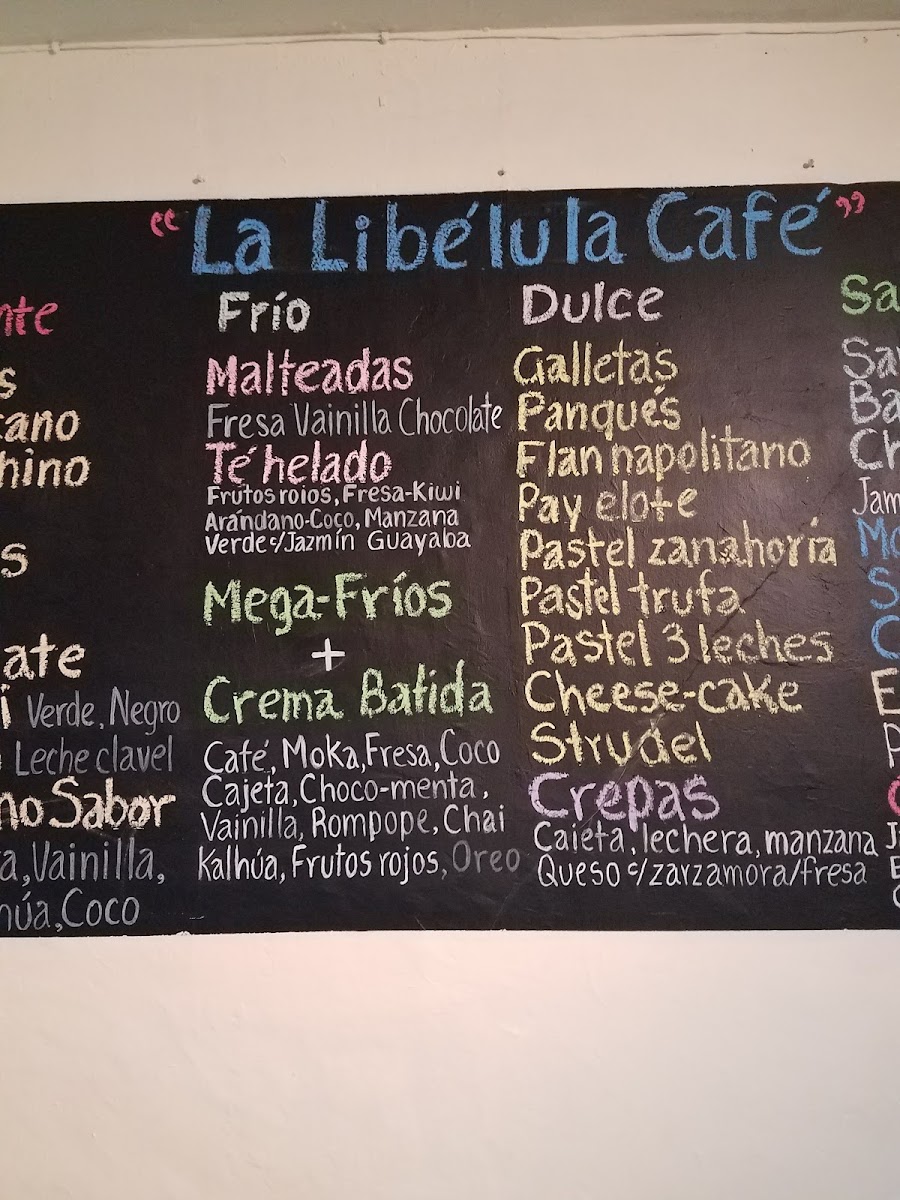 "La Libélula Café"
nte
s
cano
hino
s
ate
i Verde, Negro
Leche clavel
no Sabor
a, Vainilla,
húa, Coco
Frío
Malteadas
Fresa Vainilla Chocolate
Té helado
Frutos roios, Fresa-Kiwi
Arándano-Coco, Manzana
Verde c/Jazmín Guayaba
Mega-Fríos
+
Crema Batida
Café, Moka, Fresa, Coco
Cajeta, Choco-menta,
Vainilla, Rompope, Chai
Kalhúa, Frutos rojos, Oreo
Dulce
Galletas
Panqués
Flan napolitano
Pay elote
Pastel zanahoria
Pastel trufa
Pastel 3 leches
Cheese-cake
Strudel
Crepas
Caieta, lechera, manzana
Queso c/zarzamora/fresa
Sa
Sa
Ba
Ch
Jam
Mo
S
C
E
P